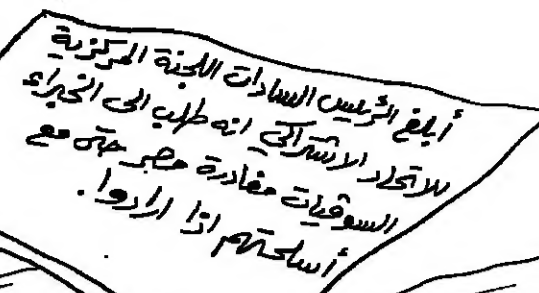 أبلغ الرئيس السادات اللجنة المركزية
للاتحاد الاشتراكي انه طلب الى الخبراء
السوڤيات مغادرة مصر حتى مع
أسلحتهم اذا ارادوا.